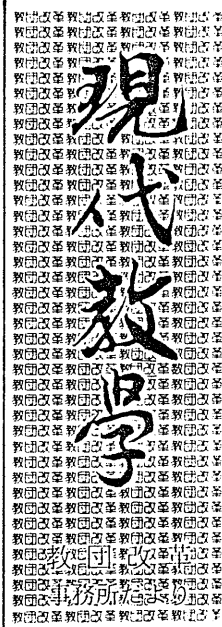 現代教學
教団改革
事務所だより